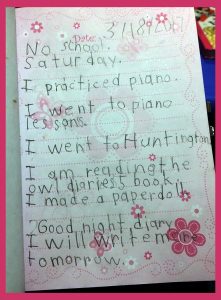 Date: 3/18/2017
No school.
Saturday.
I practiced piano.
I went to piano
lessons.
I went to Huntington.
I am reading the
owl diaries 5 book.
I made a paperdoll.
Good night, diary
I will write more
tomorrow.